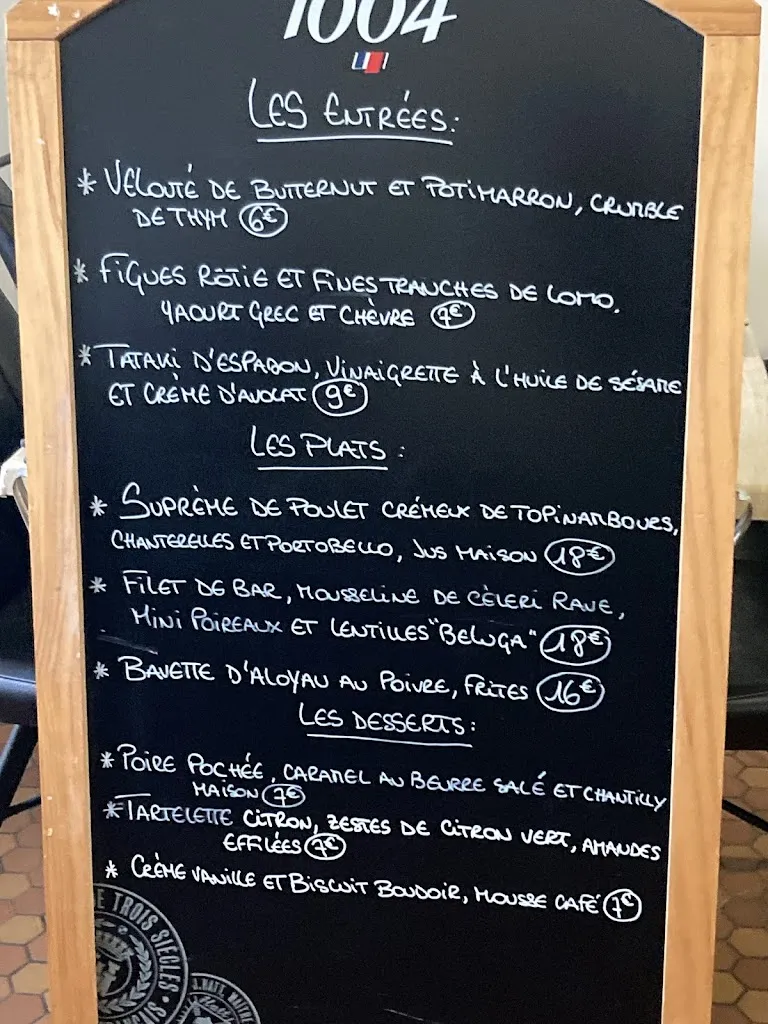 1664
LES ENTRÉES:
* VELOUTÉ DE BUTTERNUT ET POTIMARRON, CRUMBLE
DE THYM 6€
* FIGUES RÔTIE ET FINES TRANCHES DE LOMO,
YAOURT GREC ET CHÈVRE 7€
* TATAKI D'ESPADON, VINAIGRETTE À L'HUILE DE SÉSAME
ET CRÈME D'AVOCAT 9€
LES PLATS :
* SUPRÈME DE POULET CRÉMEUX DE TOPINAMBOURS,
CHANTERELLES ET PORTOBELLO, JUS MAISON 18€
* FILET DE BAR, MOUSSELINE DE CÈLERI RAVE,
MINI POIREAUX ET LENTILLES "BELUGA" 18€
* BAVETTE D'ALOYAU AU POIVRE, FRITES 16€
LES DESSERTS :
* POIRE POCHÉE, CARAMEL AU BEURRE SALÉ ET CHANTILLY
MAISON 7€
* TARTELETTE CITRON, ZESTES DE CITRON VERT, AMANDES
EFFILÉES 7€
* CRÈME VANILLE ET BISCUIT BOUDOIR, MOUSSE CAFÉ 7€
DE TROIS SIÈCLES •
J. HATT, MAITRE